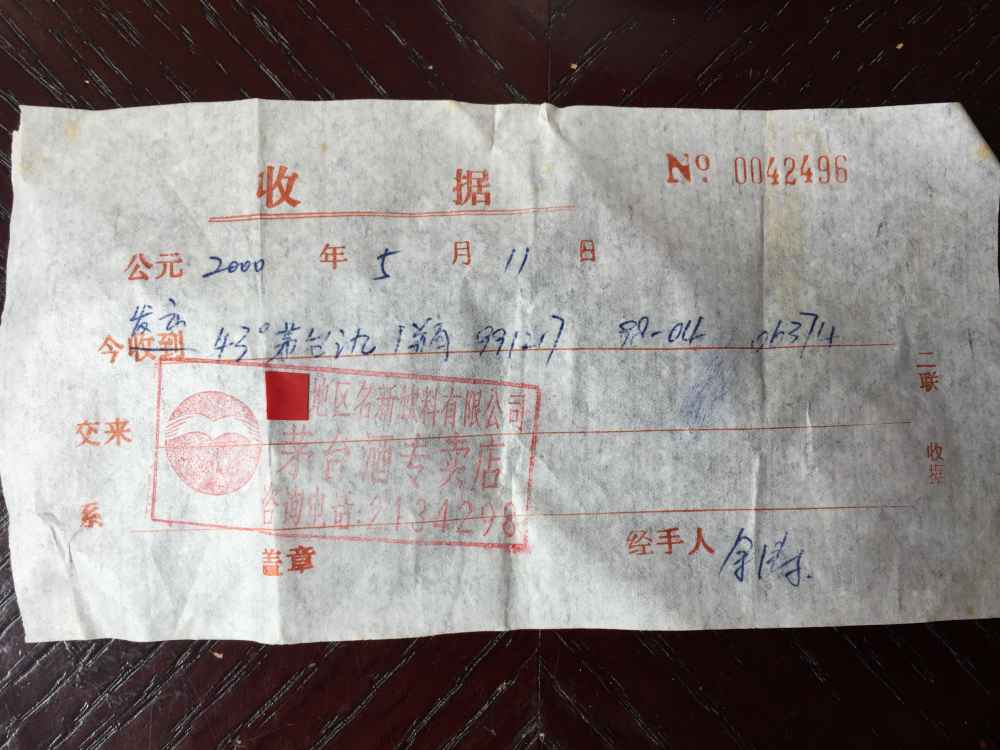 收 据 Nº 0042496
公元 2000 年 5 月 11 日
发
今收到 43° 茅台酒 1瓶 991217 99-04 06374
地区名新饮料有限公司
交来
茅台酒专卖店
咨询电话:2134298
系
盖章
经手人 余
二联 收据